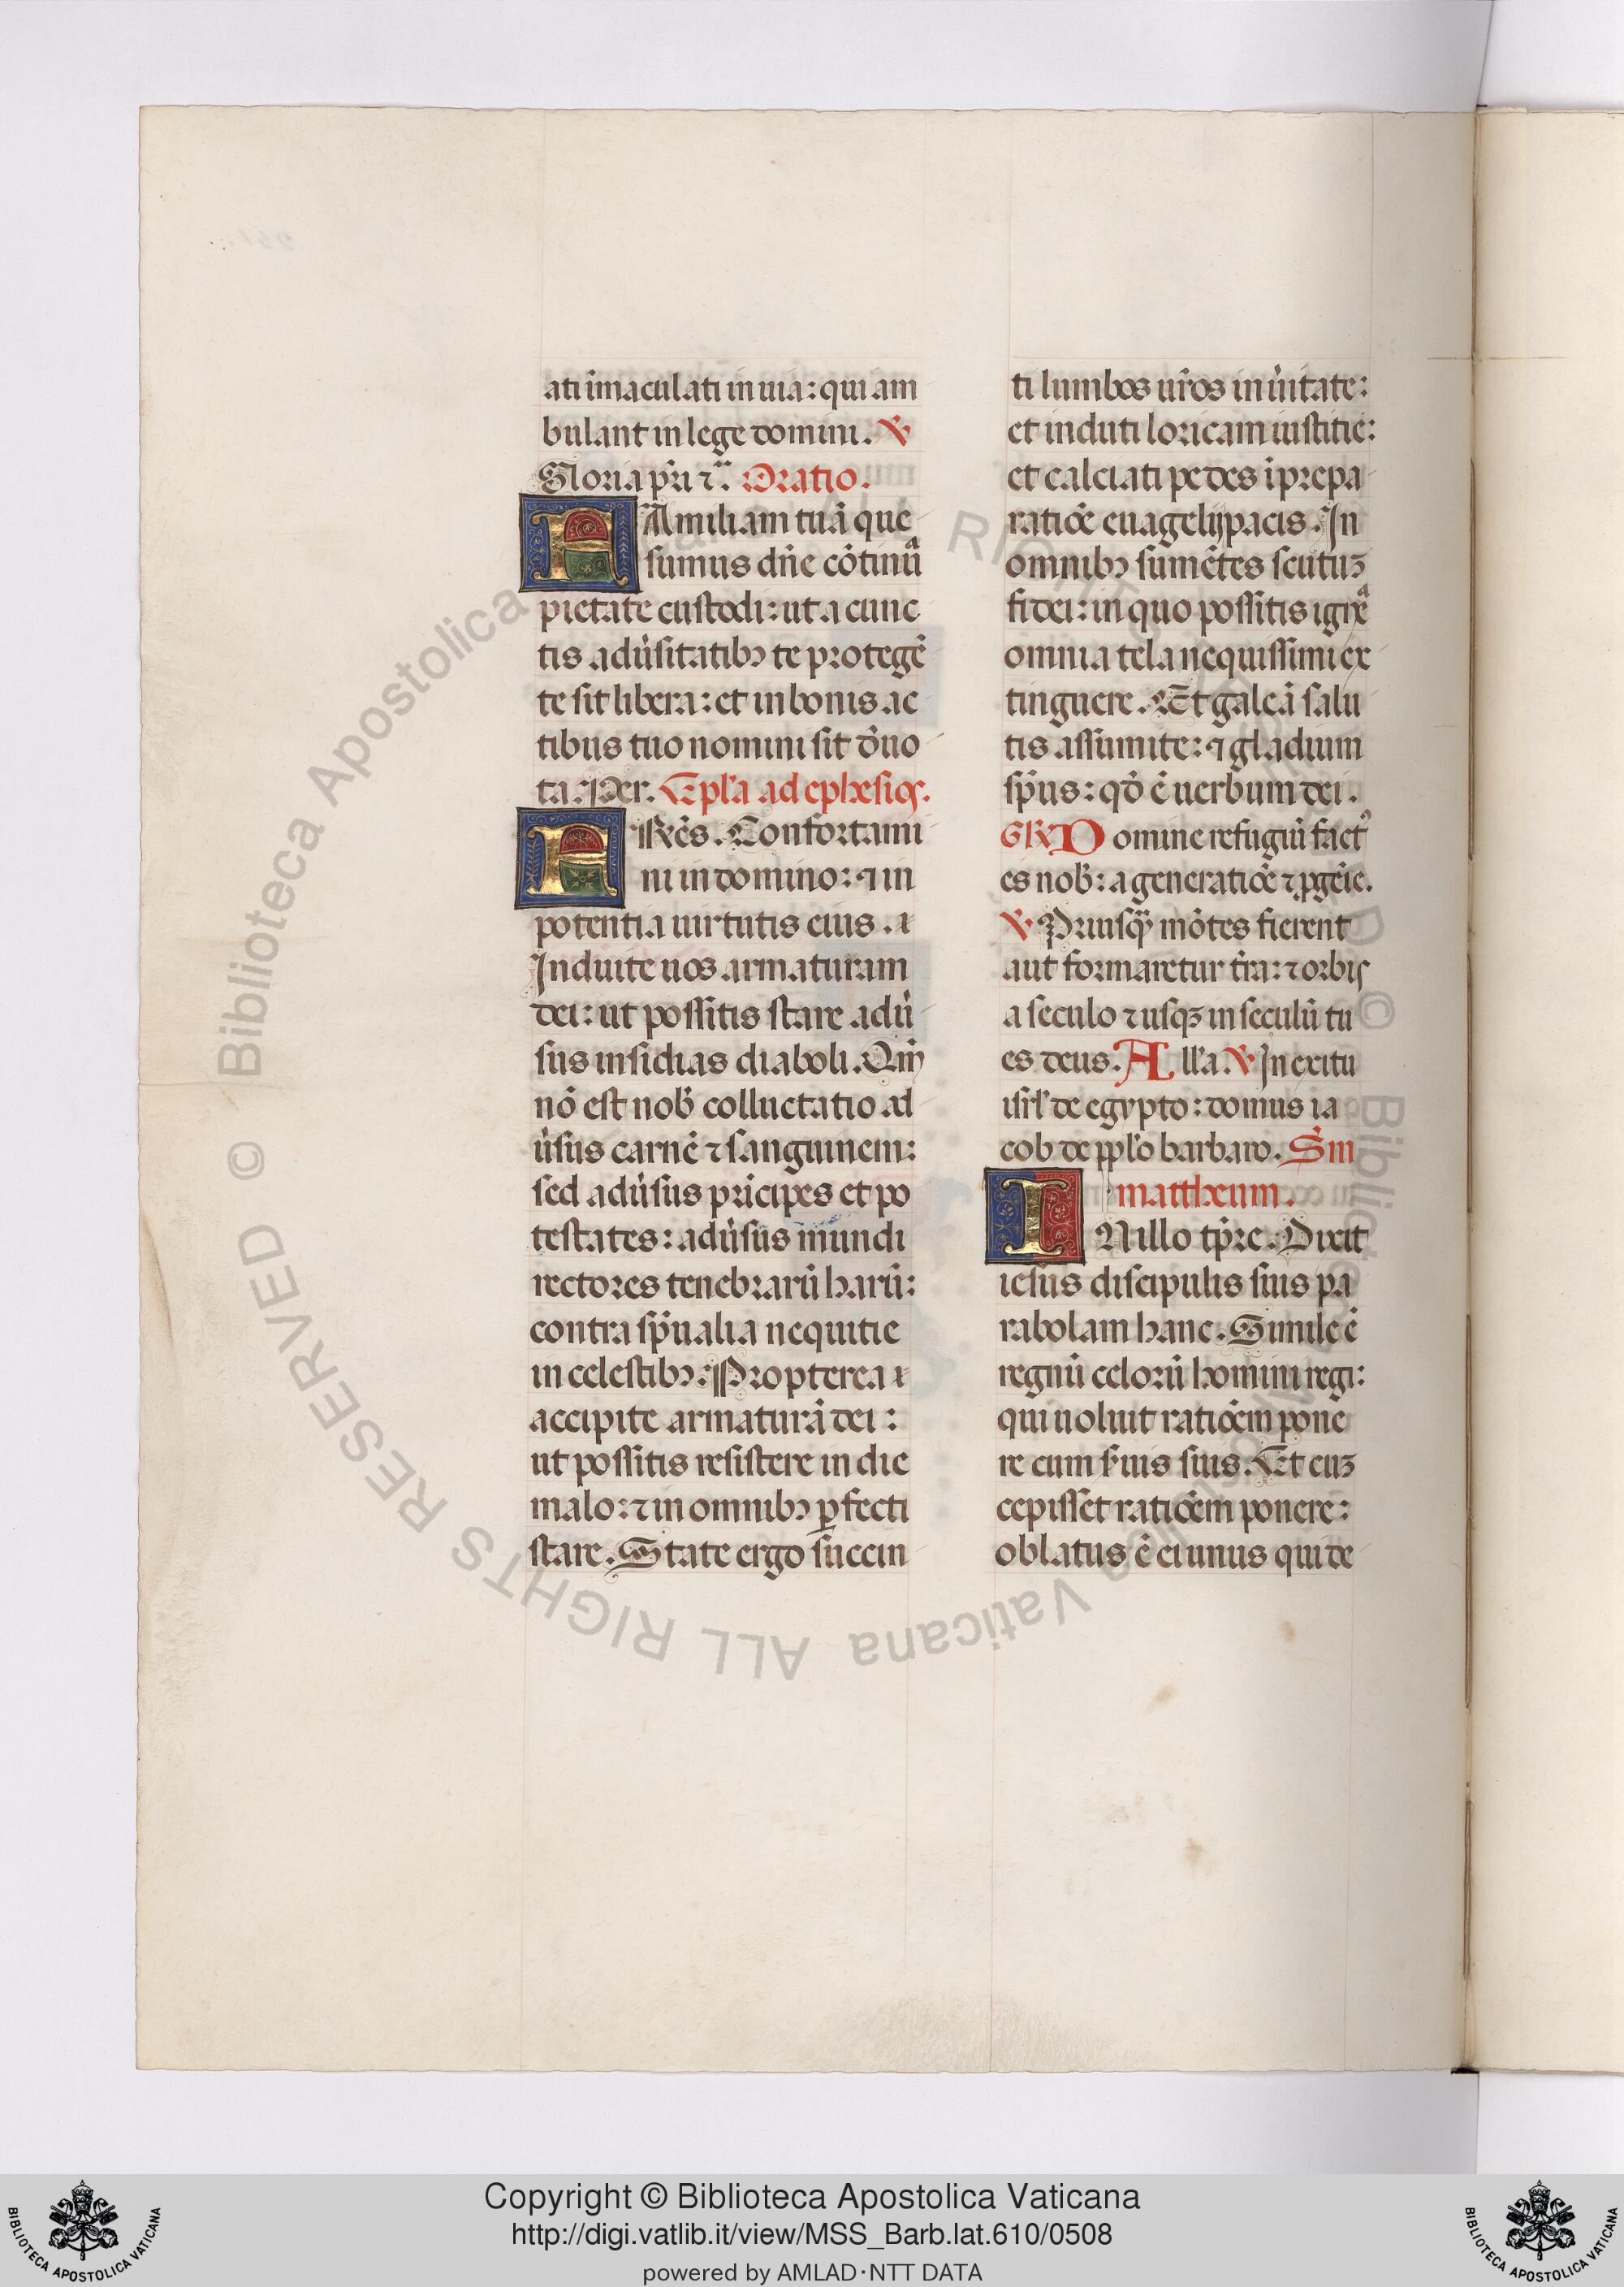 ati īmaculati in uia: qui am
bulant in lege domini. ℣
Gloria pr̄i ⁊c̄. Oratio.
FAmiliam tuā que
sumus dn̄e cōtinuᵃ̄
pietate custodi: ut a cunc
tis adu̾sitatibꝫ te protegē
te sit libera: et in bonis ac
tibus tuo nomini sit d̾uo
ta. Per. Epl̄a ad ephesiqs.
FRēs. Confortami
ni in domino: ⁊ in
potentia uirtutis eius.
Induite uos armaturam
dei: ut possitis stare adu̾
sus insidias diaboli. Qm̄
nō est nob̄ colluctatio ad
u̾sus carnē ⁊ sanguinem:
sed adu̾sus prīcipes et po
testates: adu̾sus mundi
rectores tenebrarū harū:
contra sp̄ualia nequitie
in celestibꝫ. Propterea
accipite armaturā dei:
ut possitis resistere in die
malo: ⁊ in omnibꝫ ꝑfecti
stare. State ergo succin
ti lumbos ur̄os in u̾itate:
et induti loricam iustitie:
et calciati pedes īprepa
ratiōe euāgelij pacis. In
omnibꝫ sumētes scutuꝫ
fidei: in quo possitis ignᵉᵃ
omnia tela nequissimi ex
tinguere. Et galeā salu
tis assumite: ⁊ gladium
sp̄us: qd̄ ē uerbum dei.
GR̄ Domine refugiū factꝰ
es nob̄: a generatiōe ⁊ ꝓgēie.
℣ Priusqᵃ̄ mōtes fierent
aut formaretur tr̄a: ⁊ orbis
a seculo ⁊ usqꝫ in seculū tu
es deus. All̄a. ℣ In exitu
isrl̄ de egypto: domus ia
cob de ppl̄o barbaro. Sm̄
mattheum.
INillo tp̄re. Dixit
iesus discipulis suis pa
rabolam hanc. Simile ē
regnū celorū homini regi:
qui uoluit ratiōem pone
re cum s̄uis suis. Et cuꝫ
cepisset ratiōem ponere:
oblatus ē ei unus qui de
© Biblioteca Apostolica Vaticana ALL RIGHTS RESERVED
Copyright © Biblioteca Apostolica Vaticana
http://digi.vatlib.it/view/MSS_Barb.lat.610/0508
powered by AMLAD·NTT DATA
BIBLIOTECA APOSTOLICA VATICANA
BIBLIOTECA APOSTOLICA VATICANA